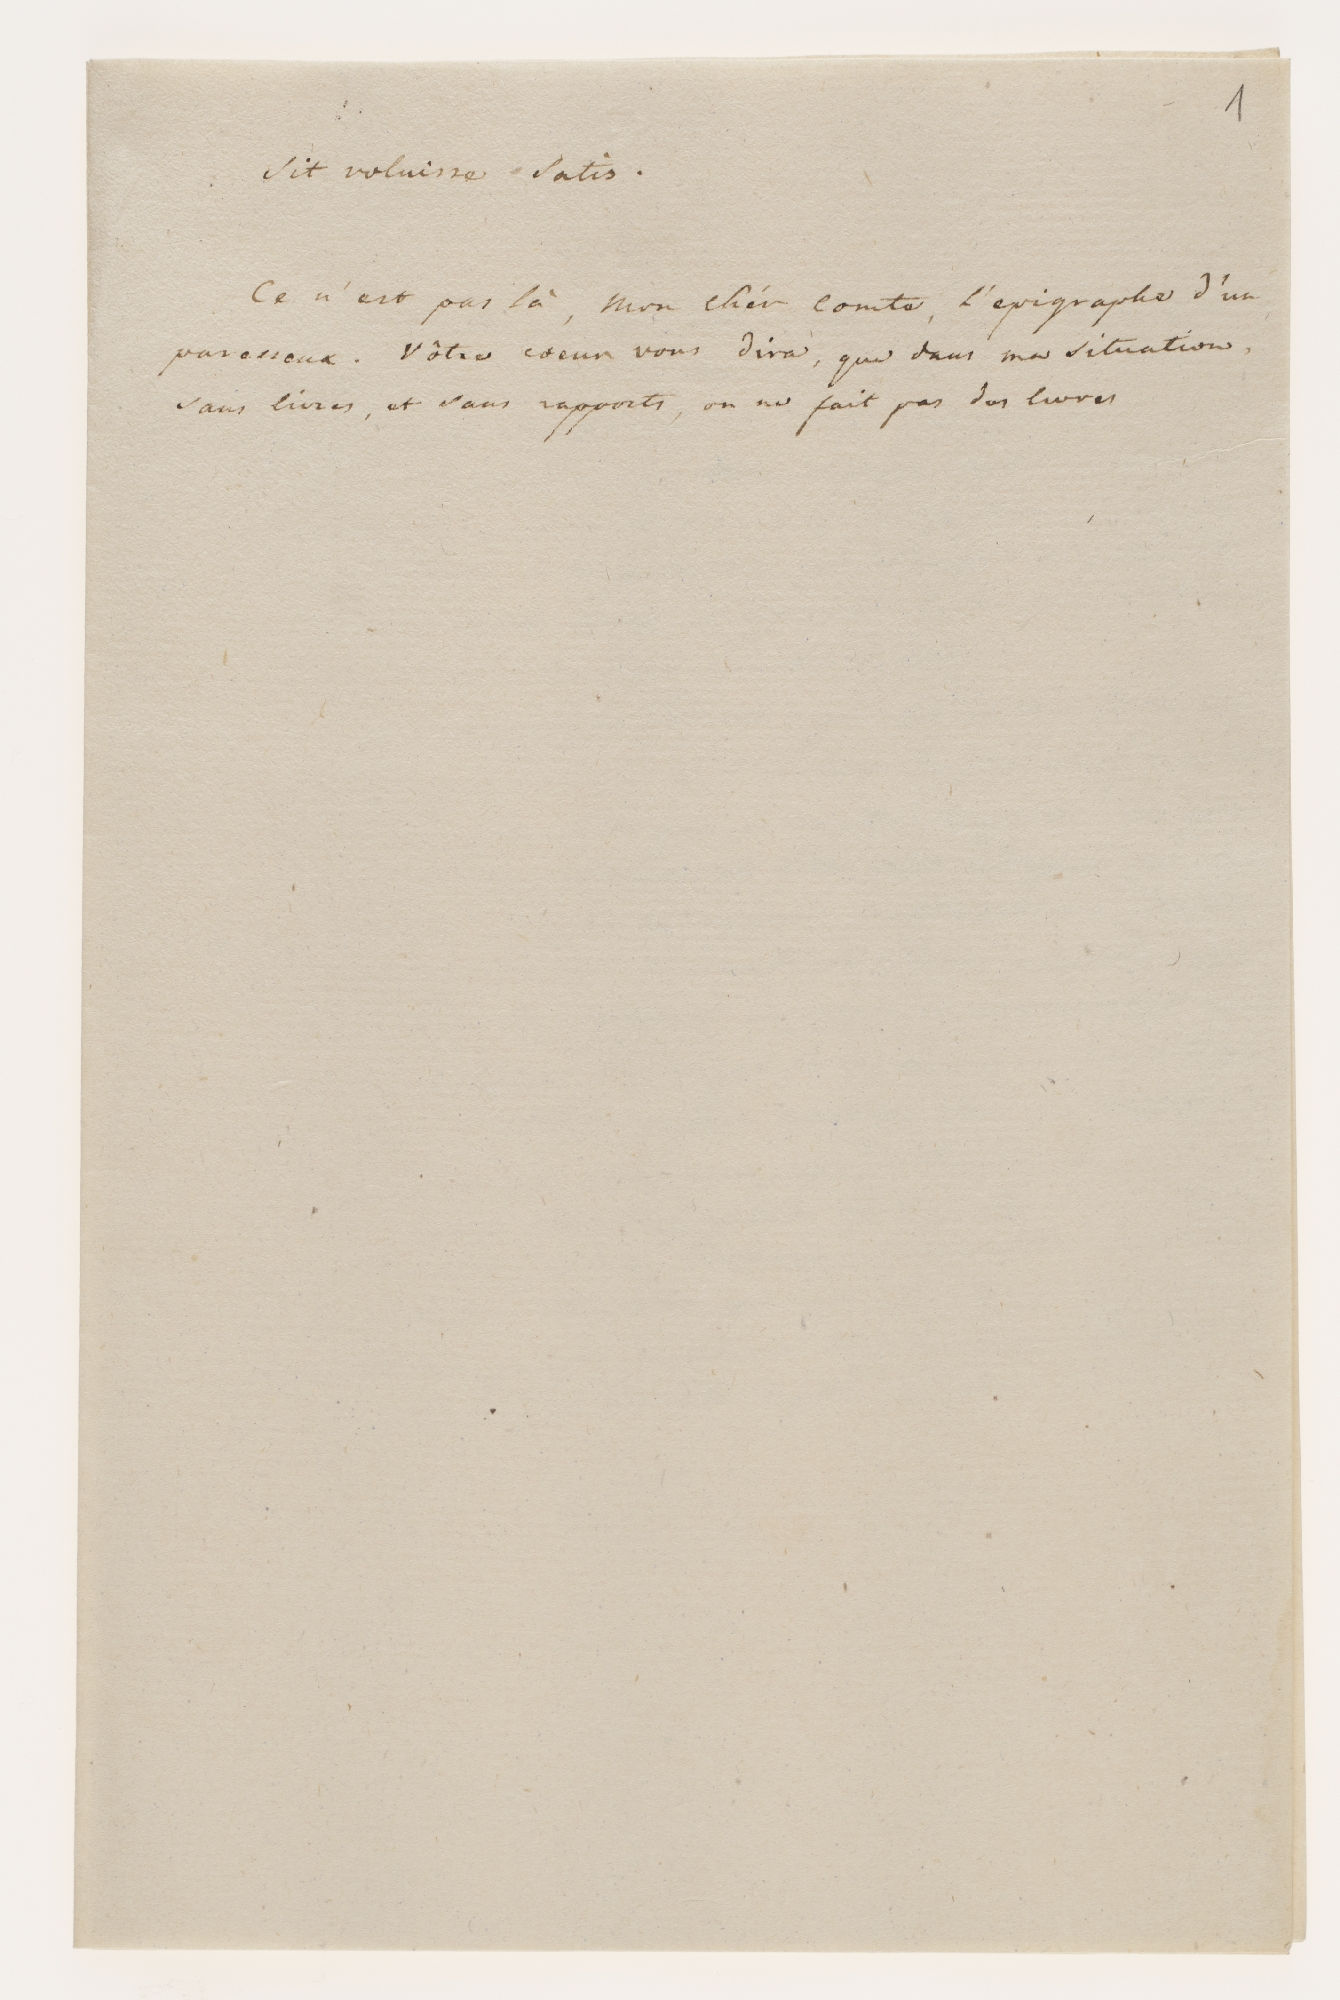 1
Sit voluisse Satis.
Ce n'est pas là, Mon Chér Comte, L'epigraphe d'un
paresseux. Vôtre coeur vous dira, que dans ma situation,
sans livres, et sans rapports, on ne fait pas des livres